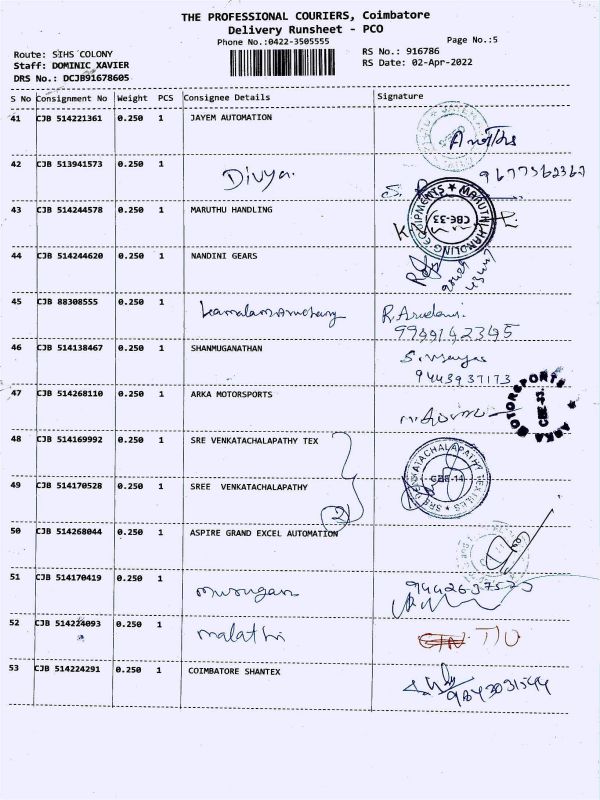 THE PROFESSIONAL COURIERS, Coimbatore
Delivery Runsheet - PCO
Phone No.:0422-3505555
Page No.:5
Route: SIHS COLONY
RS No.: 916786
Staff: DOMINIC XAVIER
RS Date: 02-Apr-2022
DRS No.: DCJB91678605
S No Consignment No Weight PCS Consignee Details Signature
41 CJB 514221361 0.250 1 JAYEM AUTOMATION
42 CJB 513941573 0.250 1 Divya. 9677362367
43 CJB 514244578 0.250 1 MARUTHU HANDLING MARUTHI HANDLING EQUIPMENTS ★ CBE-33
44 CJB 514244620 0.250 1 NANDINI GEARS
45 CJB 88308555 0.250 1 R.Arudami
46 CJB 514138467 0.250 1 SHANMUGANATHAN 9443937173
47 CJB 514268110 0.250 1 ARKA MOTORSPORTS ARKA MOTORSPORTS ★ CBE-33.
48 CJB 514169992 0.250 1 SRE VENKATACHALAPATHY TEX
SRE VENKATACHALAPATHY TEXTILES ★ CBE-14
49 CJB 514170528 0.250 1 SREE VENKATACHALAPATHY
2
50 CJB 514268044 0.250 1 ASPIRE GRAND EXCEL AUTOMATION
51 CJB 514170419 0.250 1 murugan 9442637525
52 CJB 514224093 0.250 1 malathi
53 CJB 514224291 0.250 1 COIMBATORE SHANTEX 9843031544